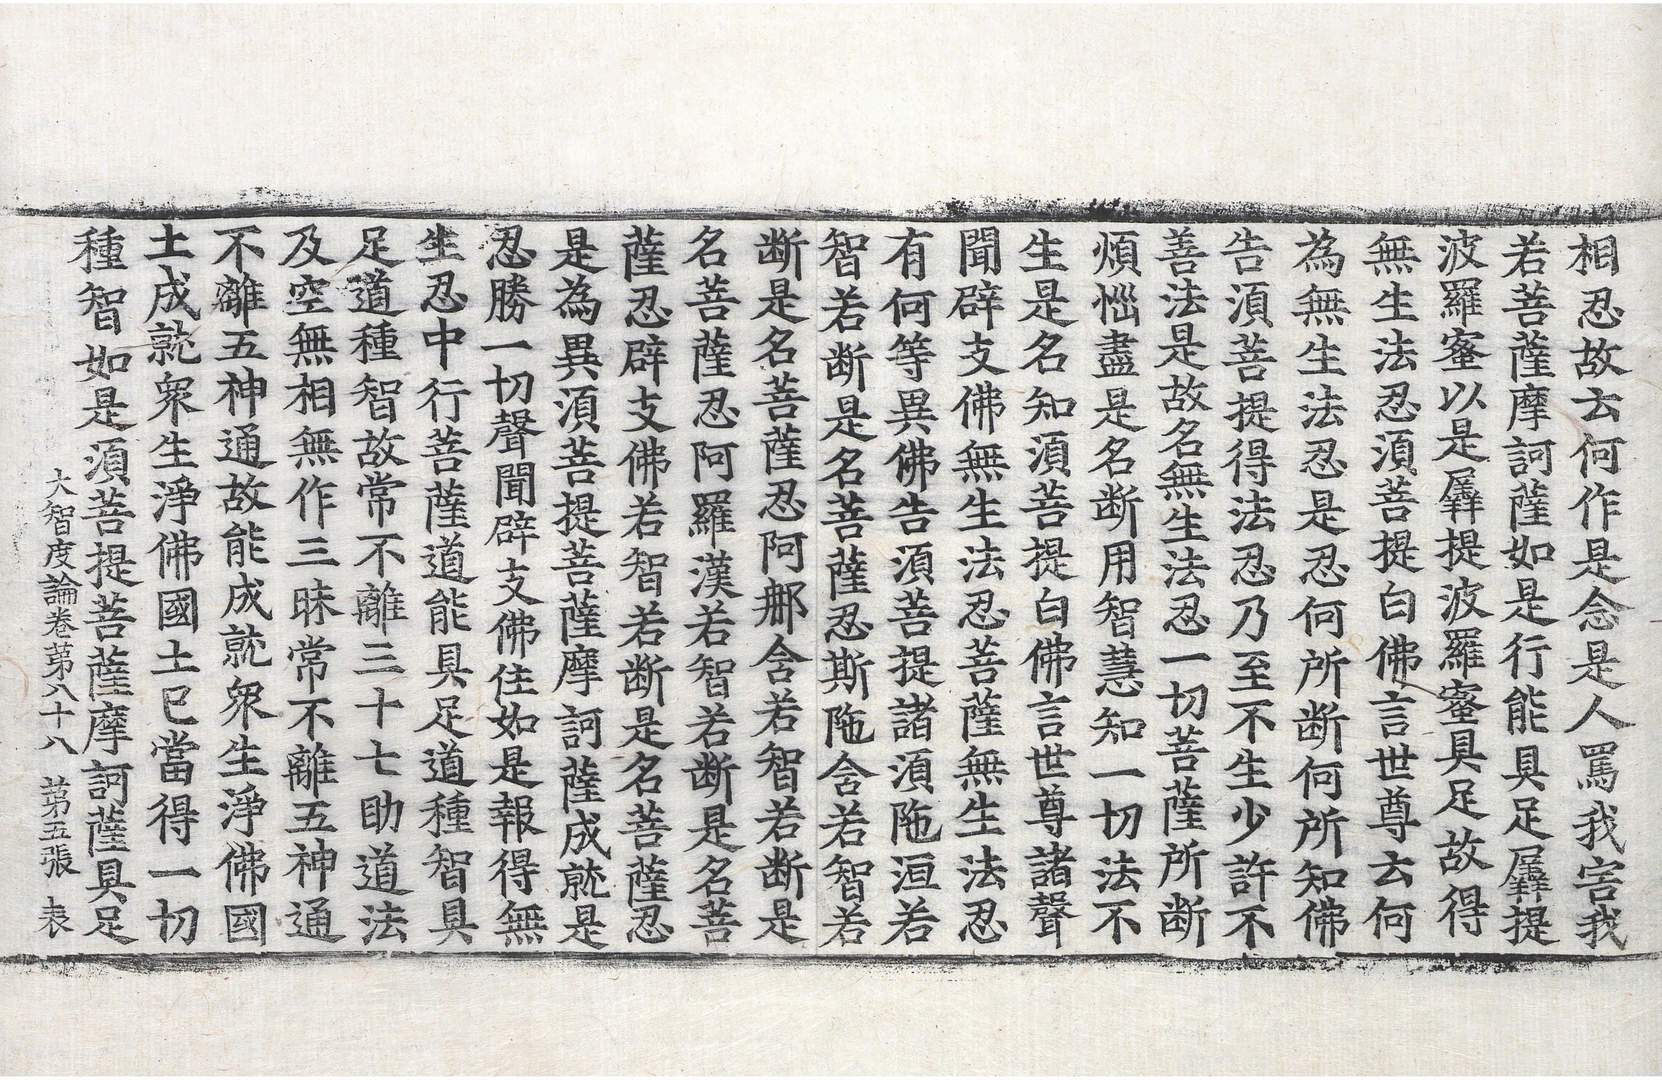 相忍故云何作是念是人罵我害我
若菩薩摩訶薩如是行能具足羼提
波羅蜜以是羼提波羅蜜具足故得
無生法忍須菩提白佛言世尊云何
為無生法忍是忍何所断何所知佛
告須菩提得法忍乃至不生少許不
善法是故名無生法忍一切菩薩所断
煩惱盡是名断用智慧知一切法不
生是名知須菩提白佛言世尊諸聲
聞辟支佛無生法忍菩薩無生法忍
有何等異佛告須菩提諸須陁洹若
智若断是名菩薩忍斯陁含若智若
断是名菩薩忍阿那含若智若断是
名菩薩忍阿羅漢若智若断是名菩
薩忍辟支佛若智若断是名菩薩忍
是為異須菩提菩薩摩訶薩成就是
忍勝一切聲聞辟支佛住如是報得無
生忍中行菩薩道能具足道種智具
足道種智故常不離三十七助道法
及空無相無作三昧常不離五神通
不離五神通故能成就衆生淨佛國
土成就衆生淨佛國土已當得一切
種智如是須菩提菩薩摩訶薩具足
大智度論卷第八十八 第五張 表